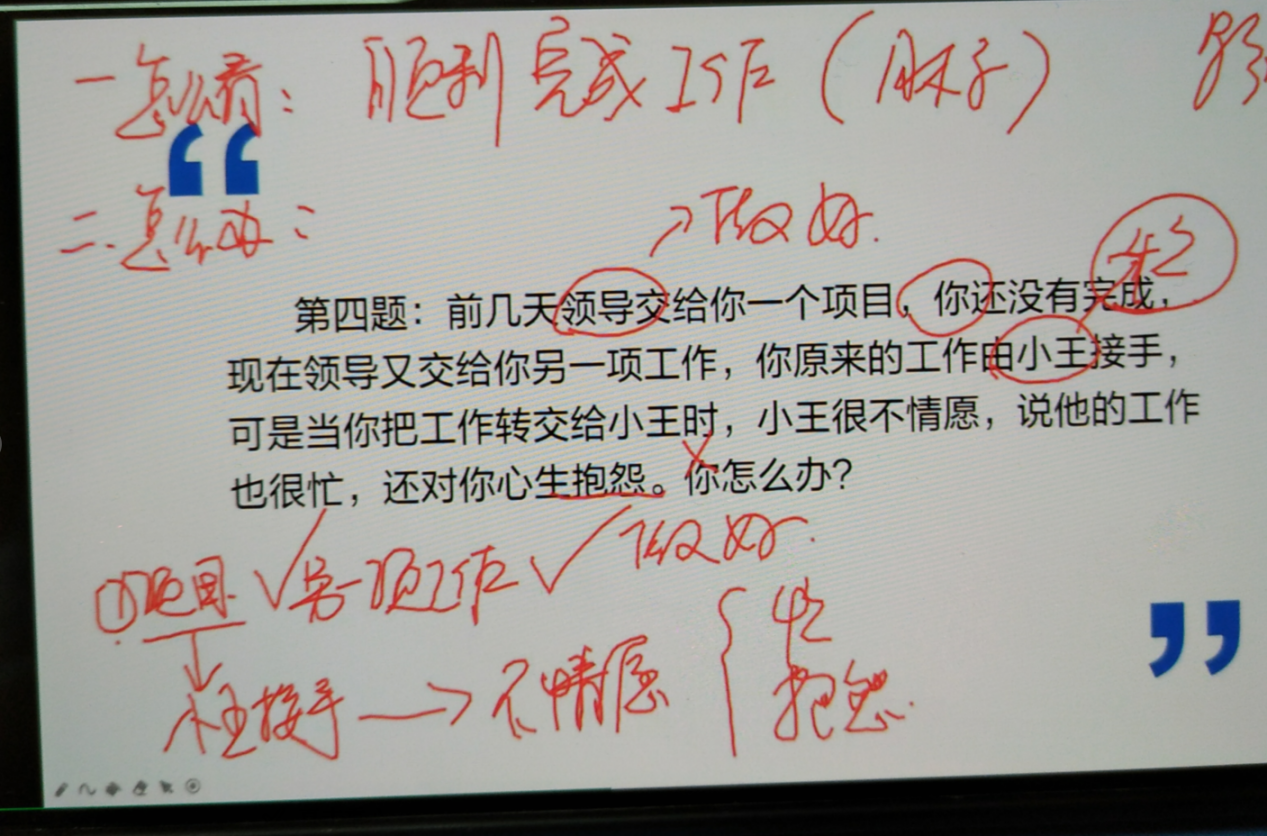 一 怎么看：顺利完成工作（
二.怎么办：
做好.
第四题：前几天领导交给你一个项目，你还没有完成，
现在领导又交给你另一项工作，你原来的工作由小王接手，
可是当你把工作转交给小王时，小王很不情愿，说他的工作
也很忙，还对你心生抱怨。你怎么办？
①项目 √另一项工作 √做好.
小王接手 → 不情愿 { 忙
抱怨.